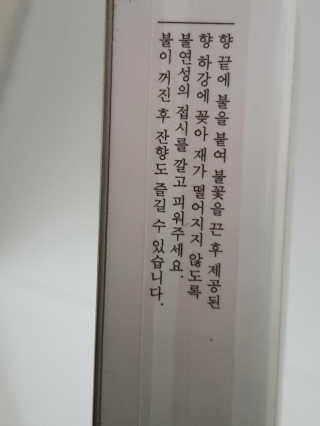 향 끝에 불을 붙여 불꽃을 끈 후 제공된
향 하강에 꽂아 재가 떨어지지 않도록
불연성의 접시를 깔고 피워주세요.
불이 꺼진 후 잔향도 즐길 수 있습니다.